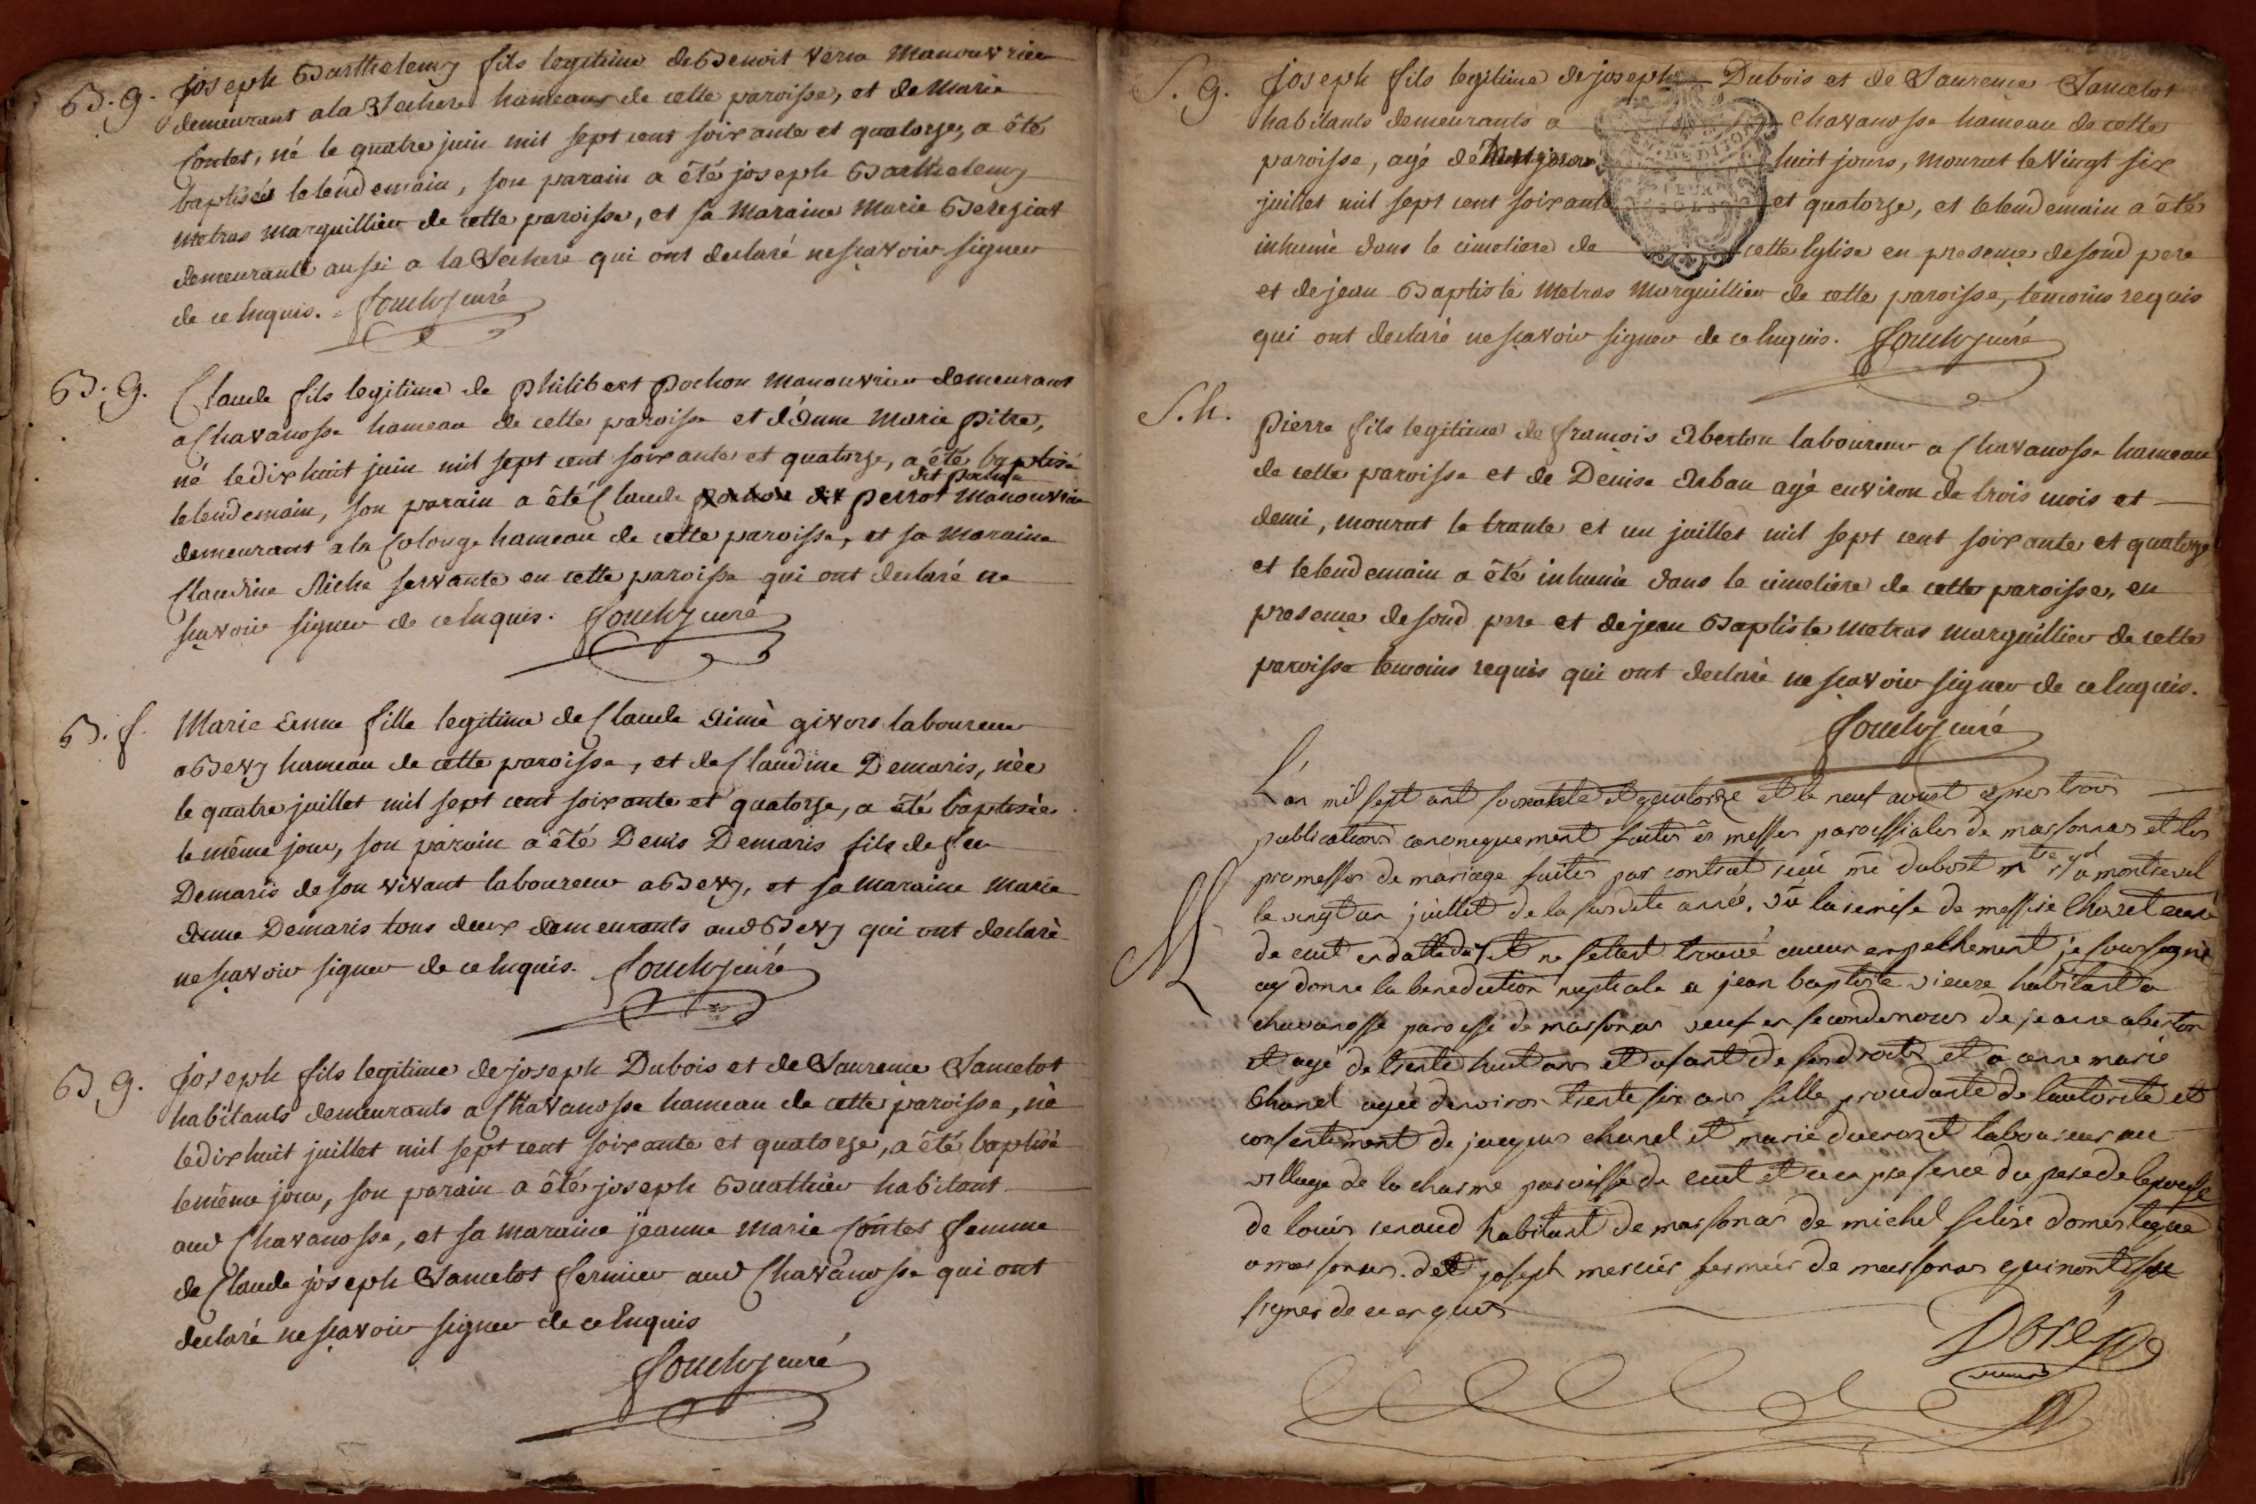 B. g. joseph Barthelemy fils legitime de Benoit verna Manouvrier
demeurant a la Vachere hameau de cette paroisse, et de Marie
Contet, né le quatre juin mil sept cent soixante et quatorze, a été
baptisé le lendemain, son parain a été joseph Barthelemy
metras marguillier de cette paroisse, et sa Maraine Marie Bereziat
demeurante aussi a la Vachere qui ont declaré ne sçavoir signer
de ce Enquis. curé
B. g. Claude fils legitime de philibert pochon Manouvrier demeurant
a Chavanosse hameau de cette paroisse et d'Anne Marie pitre,
né le dix huit juin mil sept cent soixante et quatorze, a été baptisé
le lendemain, son parain a été Claude perrot Manouvrier
demeurant a la Colonge hameau de cette paroisse, et sa Maraine
Claudine Riche servante en cette paroisse qui ont declaré ne
sçavoir signer de ce Enquis. curé
B. f. Marie Anne fille legitime de Claude Aimé givors laboureur
a Bevy hameau de cette paroisse, et de Claudine Demaris, née
le quatre juillet mil sept cent soixante et quatorze, a été baptisée
le même jour, son parain a été Denis Demaris fils de feu
Demaris de son vivant laboureur a Bevy, et sa Maraine Marie
Anne Demaris tous deux demeurants aud Bevy qui ont declaré
ne sçavoir signer de ce Enquis. curé
B. g. joseph fils legitime de joseph Dubois et de Laurence Lamelot
habitants demeurants a Chavanosse hameau de cette paroisse, né
le dix huit juillet mil sept cent soixante et quatorze, a été baptisé
le même jour, son parain a été joseph Buathier habitant
aud Chavanosse, et sa Maraine jeanne Marie Contet femme
de Claude joseph Lamelot fermier aud Chavanosse qui ont
declaré ne sçavoir signer de ce Enquis
curé
S. g. joseph fils legitime de joseph Dubois et de Laurence Lamelot
habitants demeurants a Chavanosse hameau de cette
paroisse, agé de huit jours, mourut le Vingt six
juillet mil sept cent soixante et quatorze, et le lendemain a été
inhumé dans le cimetiere de cette Eglise en presence de sond pere
et de jean Baptiste Metras Marguillier de cette paroisse, temoins requis
qui ont declaré ne sçavoir signer de ce Enquis. curé
S. h. pierre fils legitime de françois Aberton laboureur a Chavanosse hameau
de cette paroisse et de Denise Arban agé environ de trois mois et
demi, mourut le trante et un juillet mil sept cent soixante et quatorze
et le lendemain a été inhumé dans le cimetiere de cette paroisse, en
presence de sond pere et de jean Baptiste Metras marguillier de cette
paroisse temoins requis qui ont declaré ne sçavoir signer de ce Enquis.
curé
L'an mil sept cent soixante et quatorze et le neuf aoust apres trois
publications canoniquement faites és messes paroissiales de massonas et les
promesses de mariage faites par contrat reçu me dubost a montrevel
le vingt un juillet de la susdite année. vü la remise de messire curé
de cuet en datte du et ne settant trouvé aucun empeshement je soussigné
M ay donné la benediction nuptiale a jean baptiste vieure habitant a
chavanosse paroisse de massonas veuf en seconde noces de jeanne aberton
et agé de trente huit ans et usant de ses droits et a anne marie
chanel agée denviron trente six ans fille procedante de lautorité et
consentement de jacques chanel et marie ducrozet laboureur au
village de la charme paroisse de cuet et ce en presence du pere de lepouse
de louis renaud habitant de massonas de michel domestique
a massonas. et joseph mercier fermier de massonas qui nont sçu
signer de ce enquis
Doré